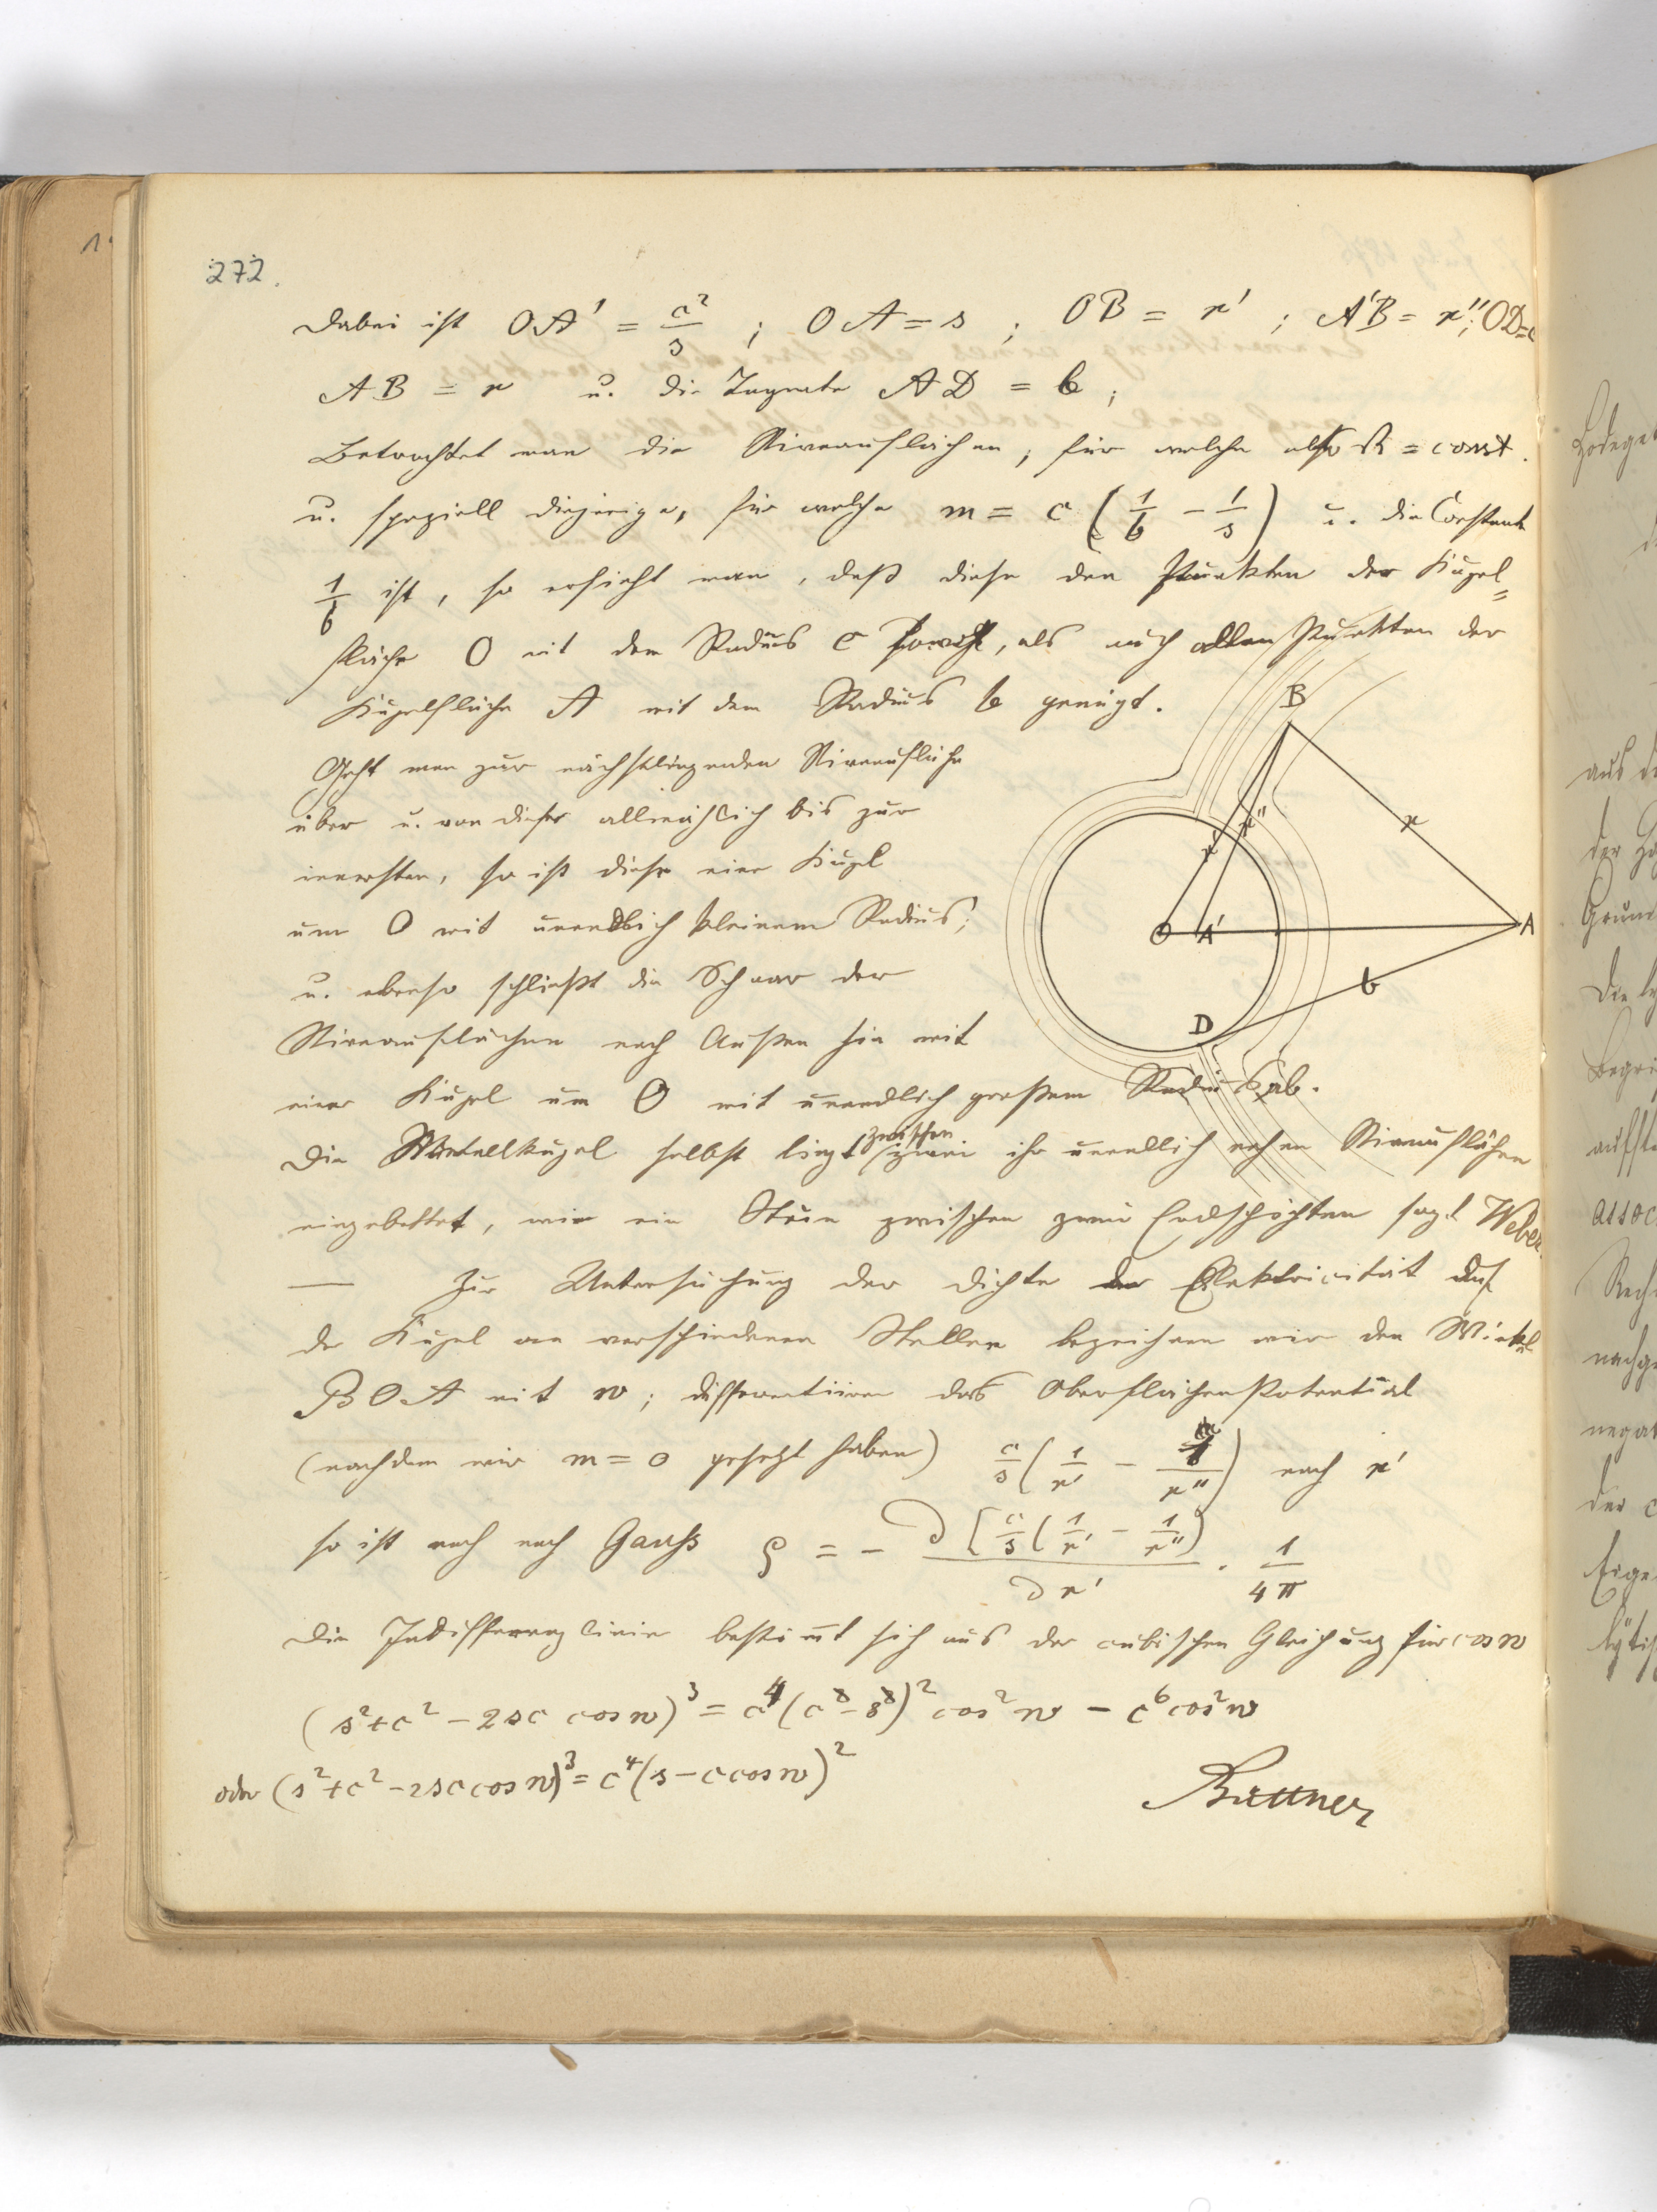 272.
Dabei ist OA' = c²/s ; OA = s ; OB = r' ; A'B = r''; OD=c
AB = r u. die Tangente AD = b ;
Betrachtet man die Niveauflächen, für welche also = const.
u. speziell diejenige, für welche m = c (1/b − 1/s) u. die Constante
1/b ist, so ersieht man, daß diese den Punkten der Kugel=
fläche O mit dem Radius c sowohl, als auch allen Punkten der
Kugelfläche A mit dem Radius b genügt.
Geht man zur nächstliegenden Niveaufläche
über u. von dieser allmählich bis zur
innersten, so ist diese eine Kugel
um O mit unendlich kleinem Radius;
u. ebenso schließt die Schaar der
Niveauflächen nach Außen hin mit
einer Kugel um O mit unendlich großem Radius ab.
Die Metallkugel selbst liegt zwischen zwei ihr unendlich nahen Niveauflächen
eingebettet, wie ein Stein zwischen zwei Erdschichten sagt Weber.
— Zur Untersuchung der Dichte der Elektricität auf
der Kugel an verschiedenen Stellen bezeichnen wir den Winkel
BOA mit w ; differentiiren das Oberflächenpotential
(nachdem wir m = 0 gesetzt haben) c/s (1/r' − 1/r'') nach r'
so ist nach Gauss ρ = − ∂ [c/s (1/r' − 1/r'')] / ∂r' . 1/4π
Die Indifferenzlinie bestimmt sich aus der cubischen Gleichung für cos w
(s² + c² − 2sc cos w)³ = c⁴ cos² w − c⁶ cos² w
oder (s² + c² − 2sc cos w)³ = c⁴ (s − c cos w)²
Büttner
B
r
r'
r''
O
A'
A
b
D